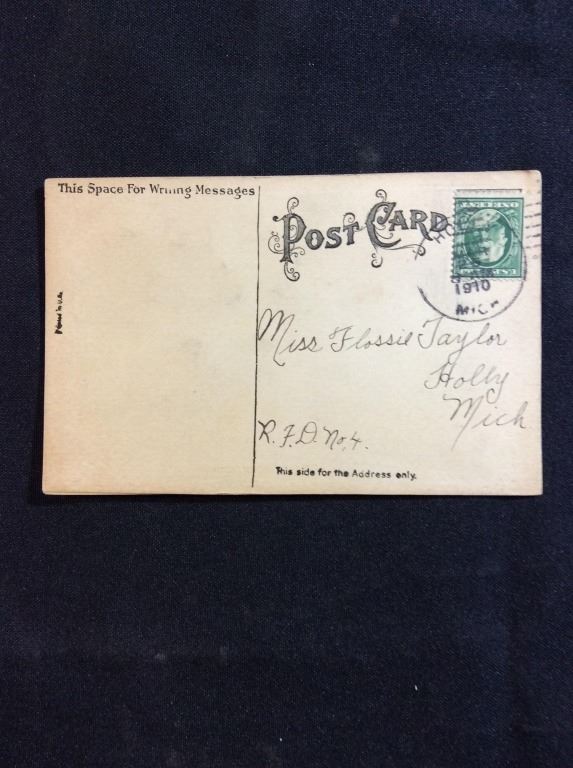 This Space For Writing Messages
POST CARD
HOLLY
1910
MICH
ONE CENT
Miss Flossie Taylor
Holly
Mich
R.F.D. No, 4.
This side for the Address only.
Printed in U.S.